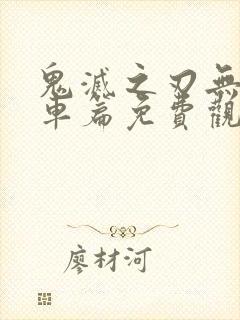 鬼滅之刃無
車篇免費觀
廖材河